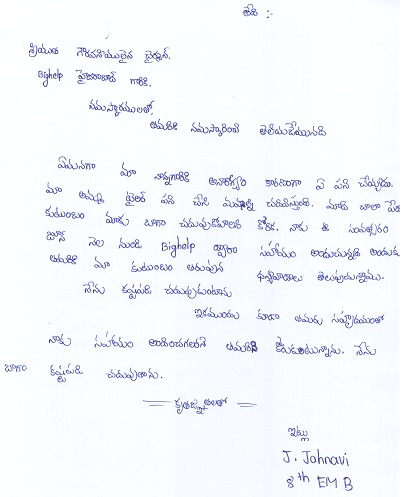 తేది :-
శ్రీయుత గౌరవనీయులైన చైర్మన్.
Bighelp హైదరాబాద్ గారికి.
నమస్కారములతో,
తమరికి నమస్కారించి తెలియజేయునది
ఏమనగా మా నాన్నగారికి అనారోగ్యం కారణంగా ఏ పని చేయ్యడు.
మా అమ్మ టైలర్ పని చేసి మమ్మల్ని చదివిస్తుంది. మాది చాలా పేద
కుటుంబం మాకు బాగా చదువుకోవాలని కోరిక. నాకు ఈ సంవత్సరం
జూన్ నెల నుండి Bighelp ద్వారా సహాయం అందుచున్నది అందుకు
తమరికి మా కుటుంబం తరుపున ధన్యవాదాలు తెలుపుచున్నాము.
నేను కష్టపడి చదువుకుంటాను
ఇకముందు కూడా తమరు సహృదయంతో
నాకు సహాయం అందించగలరని తమరిని కోరుకుంటున్నాను. నేను
బాగా కష్టపడి చదువుతాను.
కృతజ్ఞతలతో
ఇట్లు
J. Jahnavi
8th EM B